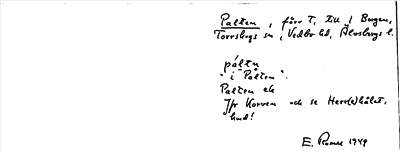 Palten, förr T, till Bergen,
Torrskogs sn, Vedbo hd, Älvsborgs l.
páltn
"i Palten".
Palten ek
Jfr Korven och se Herr(e)hålet,
hmd!
E. 1949